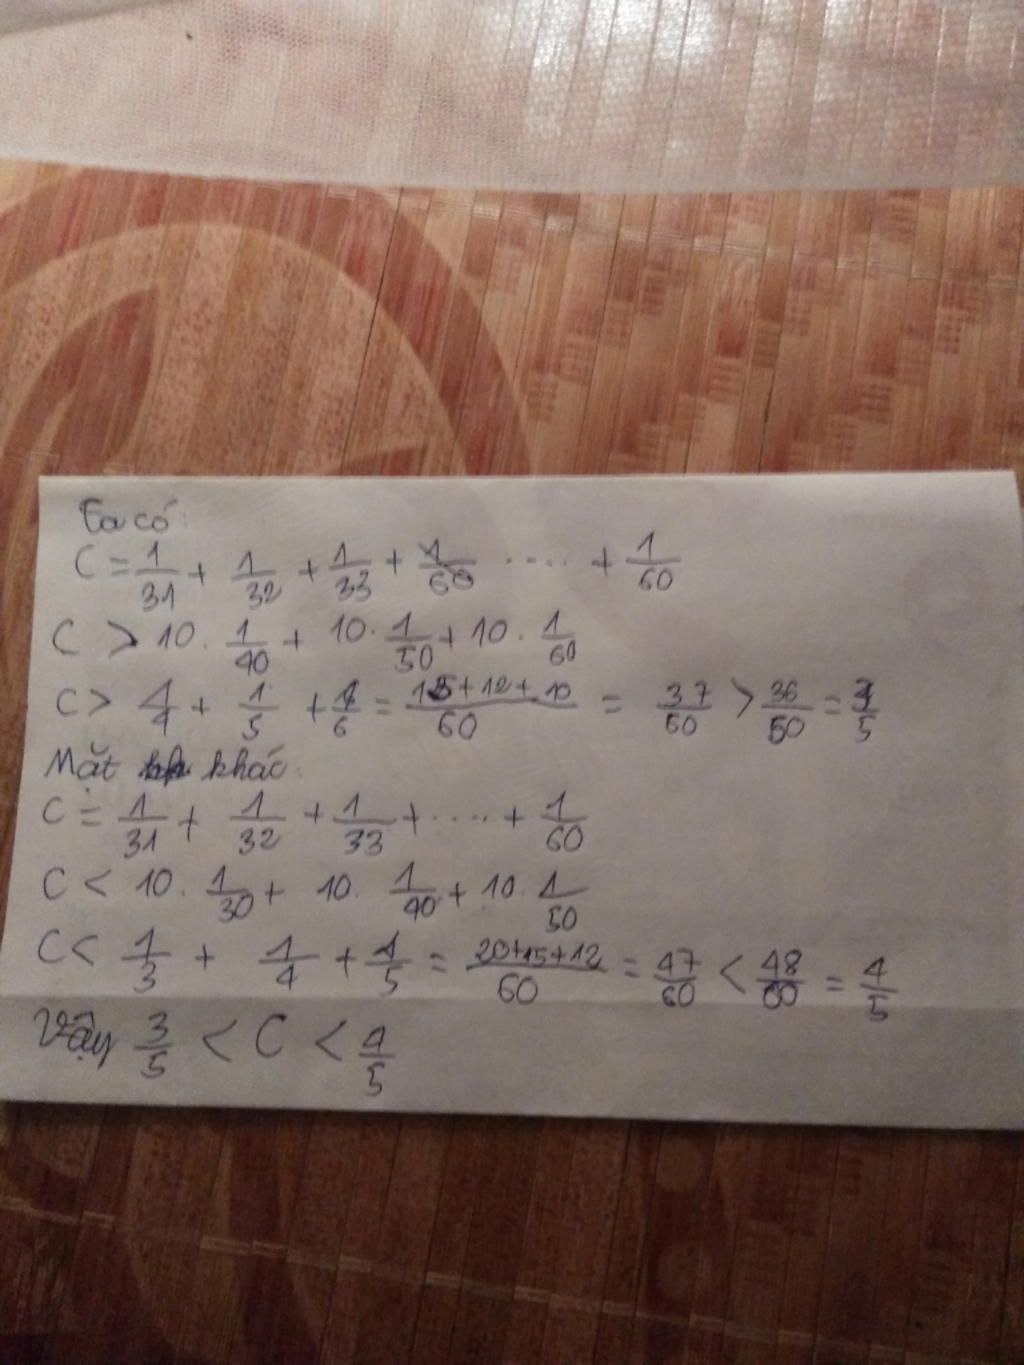 Ta có:
C = 1/31 + 1/32 + 1/33 + 1/60 ..... + 1/60
C > 10 . 1/40 + 10 . 1/50 + 10 . 1/60
C > 1/4 + 1/5 + 1/6 = 15+12+10/60 = 37/60 > 36/60 = 3/5
Mặt khác:
C = 1/31 + 1/32 + 1/33 + ..... + 1/60
C < 10 . 1/30 + 10 . 1/40 + 10 . 1/50
C < 1/3 + 1/4 + 1/5 = 20+15+12/60 = 47/60 < 48/60 = 4/5
Vậy 3/5 < C < 4/5